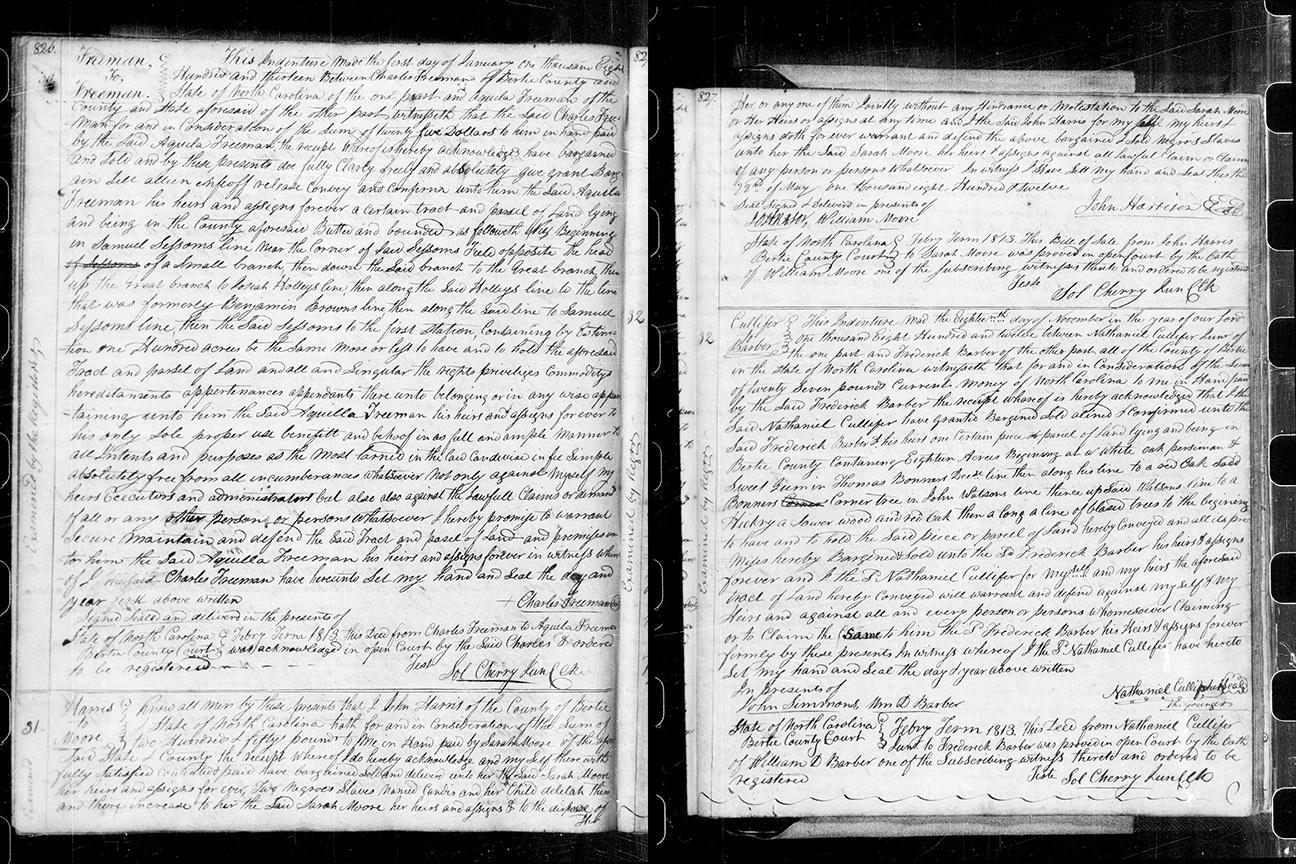 826.
Freeman, This Indenture Made the first day of January one thousand Eight
To, Hundred and thirteen Between Charles Freeman of Bertie County and
Freeman. State of North Carolina of the one part and Aquila Freeman of the
County and State aforesaid of the other part witnesseth that the Said Charles Free-
man for and in Consideration of the Sum of twenty five Dollars to him in hand paid
by the Said Aquila Freeman the receipt whereof is hereby acknowledged have bargained
and Sold and by these presents doe fully Clarly freely and absolutely give grant Barg
ain Sell alien enfeoff release Convey and Confirm unto him the Said Aquilla
Freeman his heirs and assigns forever a Certain tract and parsel of Land lying
and being in the County aforesaid Butted and bounded as followeth Beginning
in Samuel Sessoms line near the Corner of Said Sessoms Field opposite the head
of Sessoms of a Small branch, then down the Said branch to the Great branch, then
up the Great branch to Josiah Holleys line, then along the Said Holleys line to the line
that was formerly Benjamin Browns line, then along the Said line to Samuel
Sessoms line, then the Said Sessoms to the first Station, Containing by Estima-
tion one Hundred acres be the Same more or less to have and to hold the aforesaid
Tract and parsel of Land and all and Singular the rights priviliges Commoditys
hereditaments appertenances appendants there unto belonging or in any wise apper
-taining unto him the Said Aquilla Freeman his heirs and assigns forever to
his only Sole proper use benefitt and behoof in as full and ample Manner to
all Intents and purposes as the Most larned in the Law Can devise in fee Simple
absolutely free from all incumberances whatsoever Not only against Myself my
heirs Executors and administrators but also also against the Lawfull Claims or demand
of all or any other person, or persons Whatsoever I hereby promise to warrant
Secure Maintain and defend the Said Tract and pasel of Land and premises un
to him the Said Aquilla Freeman his heirs and assigns forever in witness where
of I Charles Freeman have hereunto Set my hand and Seal the day and
year first above written
+ Charles Freeman
Signed Sealed and delivered in the presents of
State of North Carolina Febry Term 1813 this Deed from Charles Freeman to Aquila Freeman
Bertie County Court was acknowledged in open Court by the Said Charles & ordered
to be registered
Test Sol Cherry Jun Clk
Examined by the Register
31
Harris Know all men by these presents that I John Harris of the County of Bertie
to & State of North Carolina hath for and in Consideration of the Sum of
Moore Two Hundred & fifty pound to Me in Hand paid by Sarah Moore of the
Said State & County the receipt Whereof I do hereby acknowledge and my Self there with
fully Satisfied Contented & paid have bargained Sold and deliverd unto her the Said Sarah Moore
her heirs and assigns for ever, Two Negroes Slaves Named Candis and her Child delelah them
and there increase to her the Said Sarah Moore her heirs and assigns & to the disposal of
Her
Examined
82
32
Examined by Register
827.
Her or any one of them Jointly without any Hindrance or Molestation to the Said Sarah Moore
or Her Heirs or assigns at any time and I the Said John Harris for my Self my heirs &
assigns doth for ever warrant and defend the above bargained & Sold Negroe Slaves
unto her the Said Sarah Moore her heirs & assigns against all Lawful Claim or Claims
of any person or persons whatsoever in witness I have Sett my hand and Seal this the
22nd of May one thousand eight Hundred & twelve
Seal Signed & Delivered in presents of
John Harreson Seal
William Moore
State of North Carolina Febry Term 1813. This Bill of Sale from John Harris
Bertie County Court to Sarah Moore was proved in open Court by the Oath
of William Moore one of the Subscribing witness thereto and ordered to be registered
Teste
Sol Cherry Jun Clk
32
Cullifer This Indenture Mad the Eighteenth day of November in the year of our Lord
to one thousand Eight Hundred and twelve between Nathaniel Cullifer Junr of
Barber the one part and Frederick Barber of the other part all of the County of Bertie
in the State of North Carolina witnesseth that for and in Consideration of the Sum
of twenty Seven pounds Current Money of North Carolina to me in Hand paid
by the Said Frederick Barber the receipt whereof is hereby acknowledged that I the
Said Nathaniel Cullifer have granted Bargined Sold aliened & Confirmed unto the
Said Frederick Barber & his heirs one Certain piece or parcel of Land lying and being in
Bertie County Contaning Eighteen Acres Beginning at a White oak persimon &
Sweet Gum in Thomas Bonners Decd line then along his line to a red Oak Said
Bonners Corner Corner tree in John Watsons line thence up Said Watsons line to a
Hickry a Sower wood and red Oak then a long a line of blased trees to the begining
to have and to hold the Said piece or parcel of Land hereby Conveyed and all its pre
Mises hereby Bargined & Sold unto the Sd Frederick Barber his heirs & assigns
forever and I the Sd Nathaniel Cullifer for My Self and my heirs the aforesaid
tract of Land hereby Conveyed will warrant and defend against my Self & my
Heirs and against all and every person or persons Whomesoever Claiming
or to Claim the Same to him the Sd Frederick Barber his Heirs & assigns forever
firmly by these presents In witness whereof I the Sd Nathaniel Cullifer have hereto
Set my hand and Seal the day & year above written
In presents of
Nathaniel Cullipher Seal
the younger
John Simmons, Wm D Barber
State of North Carolina Febry Term 1813. This Deed from Nathaniel Cullifer
Bertie County Court Junr to Frederick Barber was proved in open Court by the Oath
of William D Barber one of the Subscribing witness thereto and ordered to be
registered
Teste Sol Cherry Jun Clk
Examined by Register